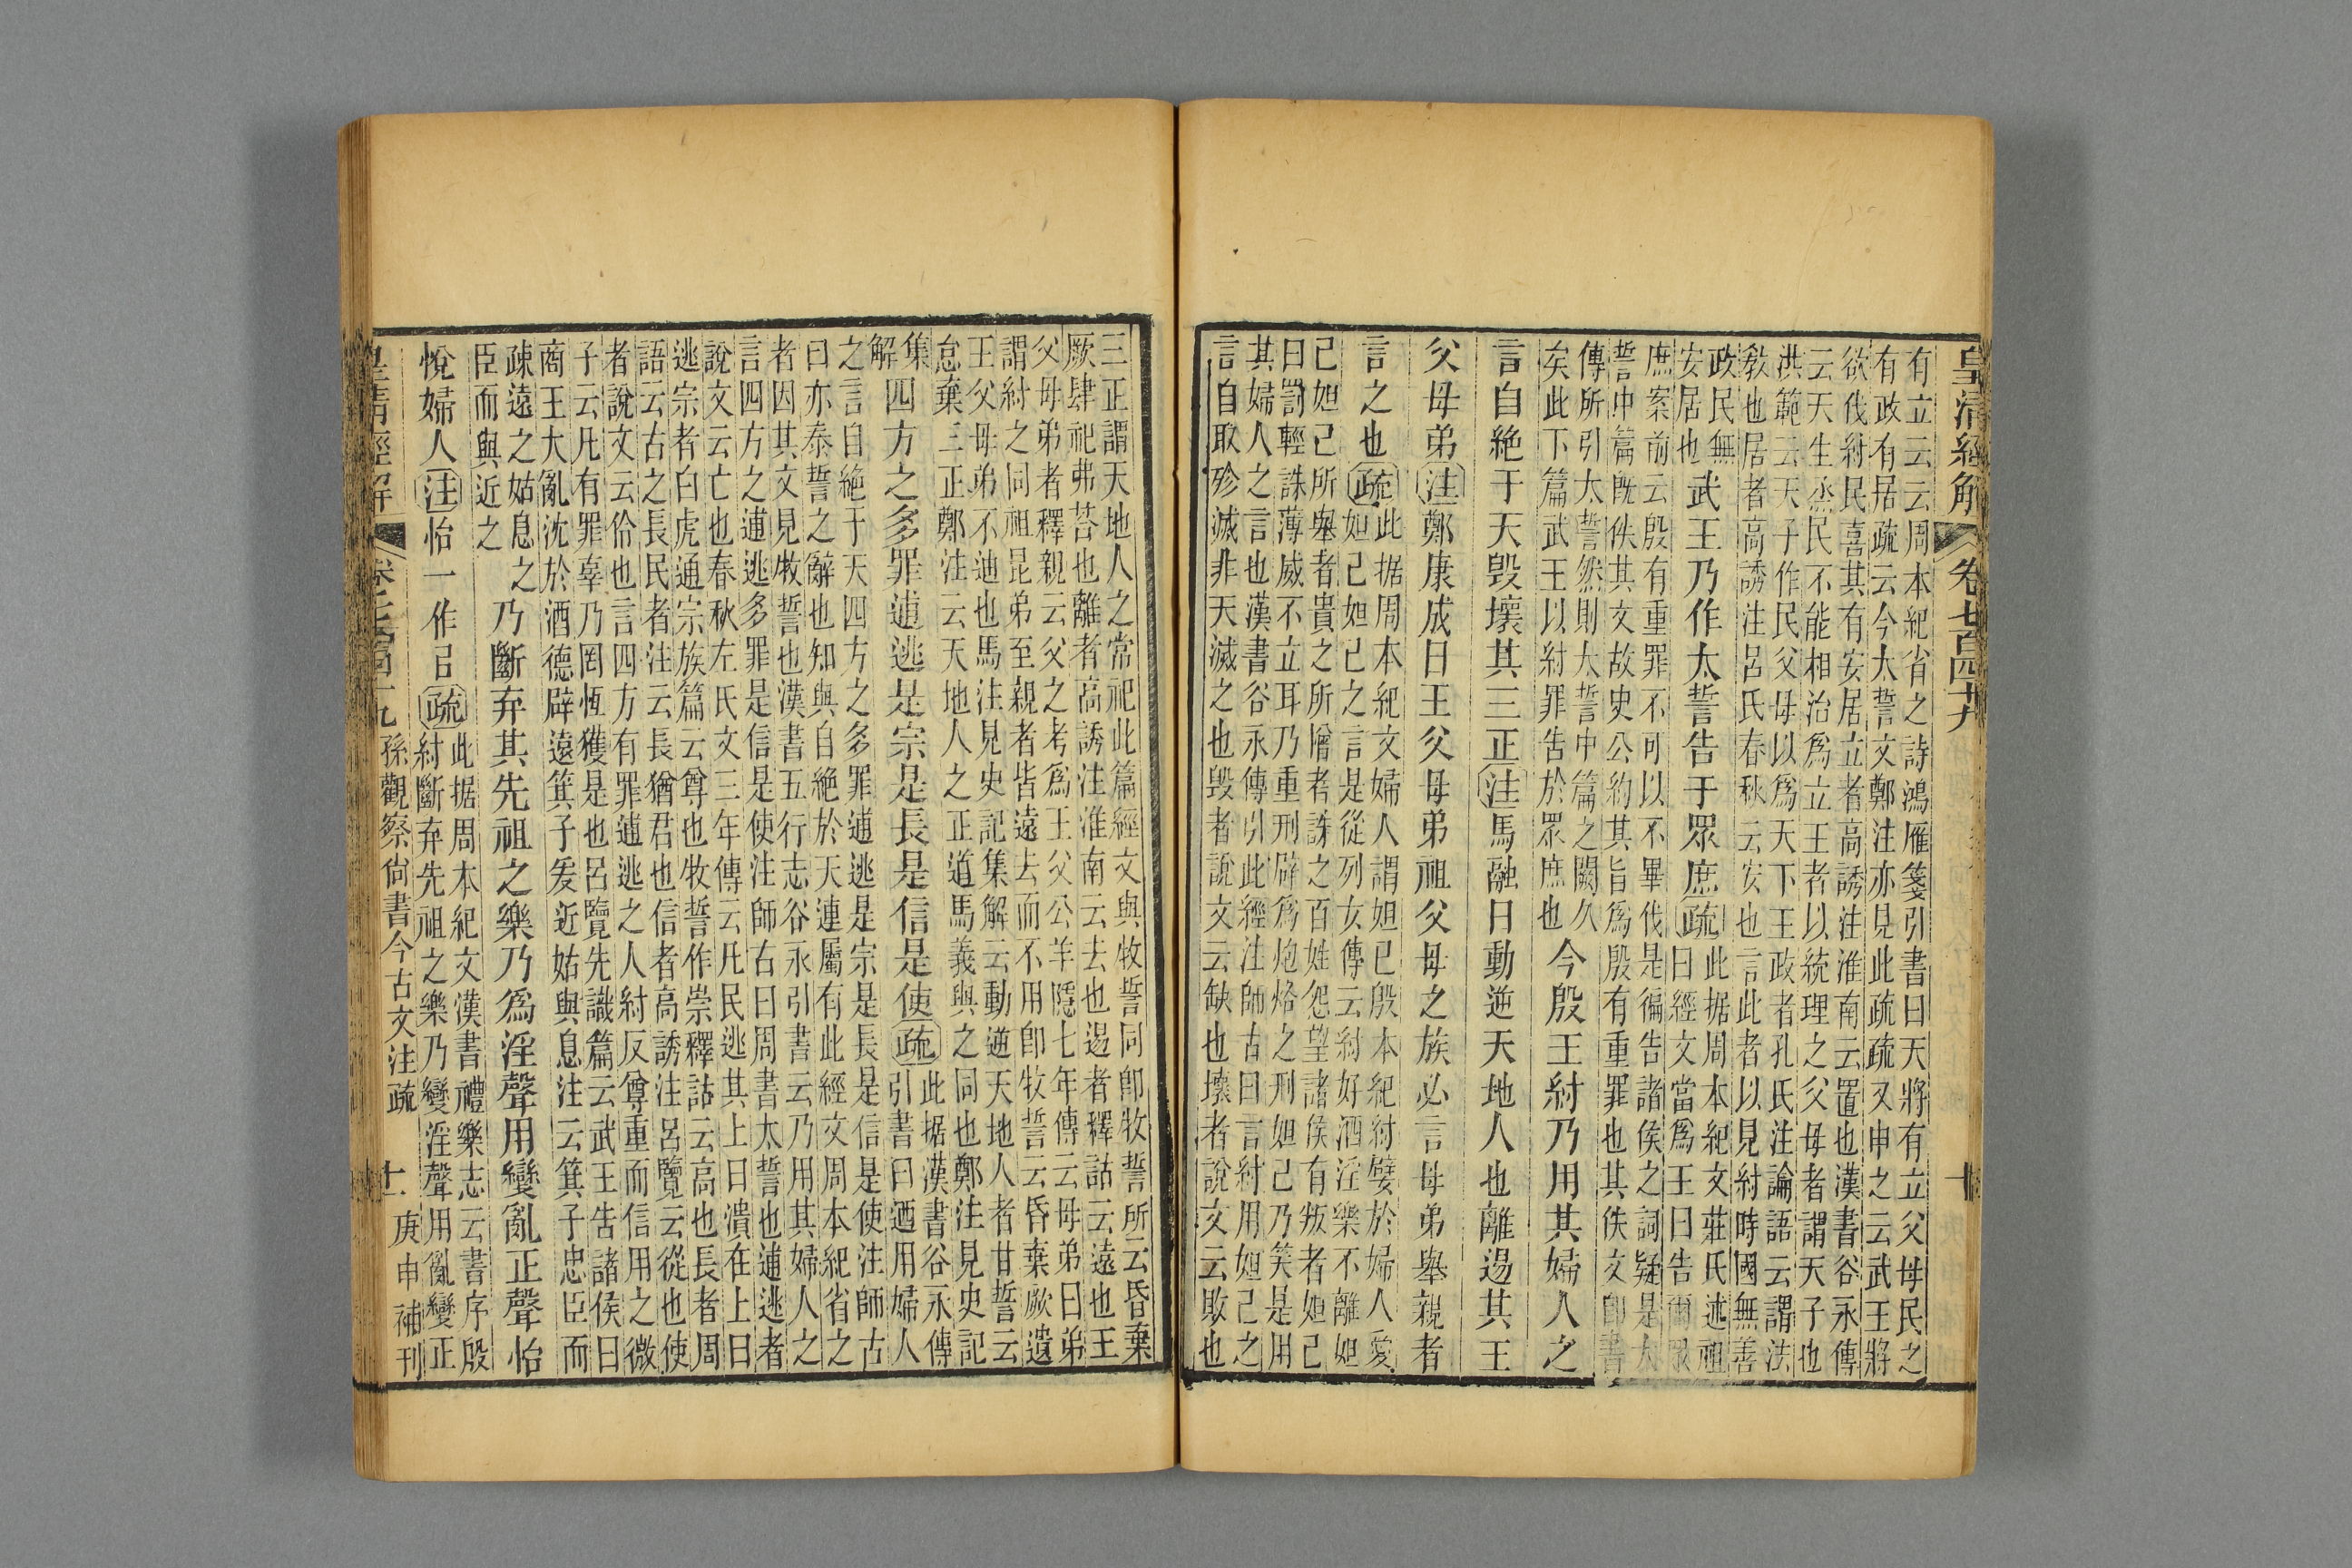 皇清經解 卷七百四十九 十
有立云云周本紀省之詩鴻雁箋引書曰天將有立父母民之
有政有居疏云今太誓文鄭注亦見此疏疏又申之云武王將
欲伐紂民喜其有安居立者高誘注淮南云置也漢書谷永傳
云天生烝民不能相治爲立王者以統理之父母者謂天子也
洪範云天子作民父母以爲天下王政者孔氏注論語云謂法
教也居者高誘注呂氏春秋云安也言此者以見紂時國無善
政民無
安居也
武王乃作太誓告于眾庶
疏
此据周本紀文莊氏述祖
曰經文當爲王曰告爾眾
庶案前云殷有重罪不可以不畢伐是徧告諸侯之詞疑是大
誓中篇既佚其文故史公約其旨爲殷有重罪也其佚文即書
傳所引大誓然則大誓中篇之闕久
矣此下篇武王以紂罪告於眾庶也
今殷王紂乃用其婦人之
言自絕于天毀壞其三正
注
馬融曰動逆天地人也離逷其王
父母弟
注
鄭康成曰王父母弟祖父母之族必言母弟舉親者
言之也
疏
此据周本紀文婦人謂妲已殷本紀紂嬖於婦人愛
妲己妲己之言是從列女傳云紂好酒淫樂不離妲
己妲己所舉者貴之所憎者誅之百姓怨望諸侯有叛者妲己
曰罰輕誅薄威不立耳乃重刑辟爲炮烙之刑妲己乃笑是用
其婦人之言也漢書谷永傳引此經注師古曰言紂用妲己之
言自取殄滅非天滅之也毀者說文云缺也壞者說文云敗也
三正謂天地人之常祀此篇經文與牧誓同即牧誓所云昏棄
厥肆祀弗荅也離者高誘注淮南云去也逷者釋詁云遠也王
父母弟者釋親云父之考爲王父公羊隱七年傳云母弟曰弟
謂紂之同祖昆弟至親者皆遠去而不用即牧誓云昏棄厥遺
王父母弟不迪也馬注見史記集解云動逆天地人者甘誓云
怠棄三正鄭注云天地人之正道馬義與之同也鄭注見史記
集
解
四方之多罪逋逃是宗是長是信是使
疏
此据漢書谷永傳
引書曰迺用婦人
之言自絕于天四方之多罪逋逃是宗是長是信是使注師古
曰亦泰誓之辭也知與自絕於天連屬有此經文周本紀省之
者因其文見牧誓也漢書五行志谷永引書云乃用其婦人之
言四方之逋逃多罪是信是使注師右曰周書太誓也逋逃者
說文云亡也春秋左氏文三年傳云凡民逃其上曰潰在上曰
逃宗者白虎通宗族篇云尊也牧誓作崇釋詁云高也長者周
語云古之長民者注云長猶君也信者高誘注呂覽云從也使
者說文云伶也言四方有罪逋逃之人紂反尊重而信用之微
子云凡有罪辜乃罔恆獲是也呂覽先識篇云武王告諸侯曰
商王大亂沈於酒德辟遠箕子爰近姑與息注云箕子忠臣而
疎遠之姑息之
臣而與近之
乃斷弃其先祖之樂乃爲淫聲用變亂正聲怡
悅婦人
注
怡一作㠯
疏
此据周本紀文漢書禮樂志云書序殷
紂斷弃先祖之樂乃變淫聲用亂變正
皇清經解 卷七百四十九 孫觀察尙書今古文注疏 十一 庚申補刊